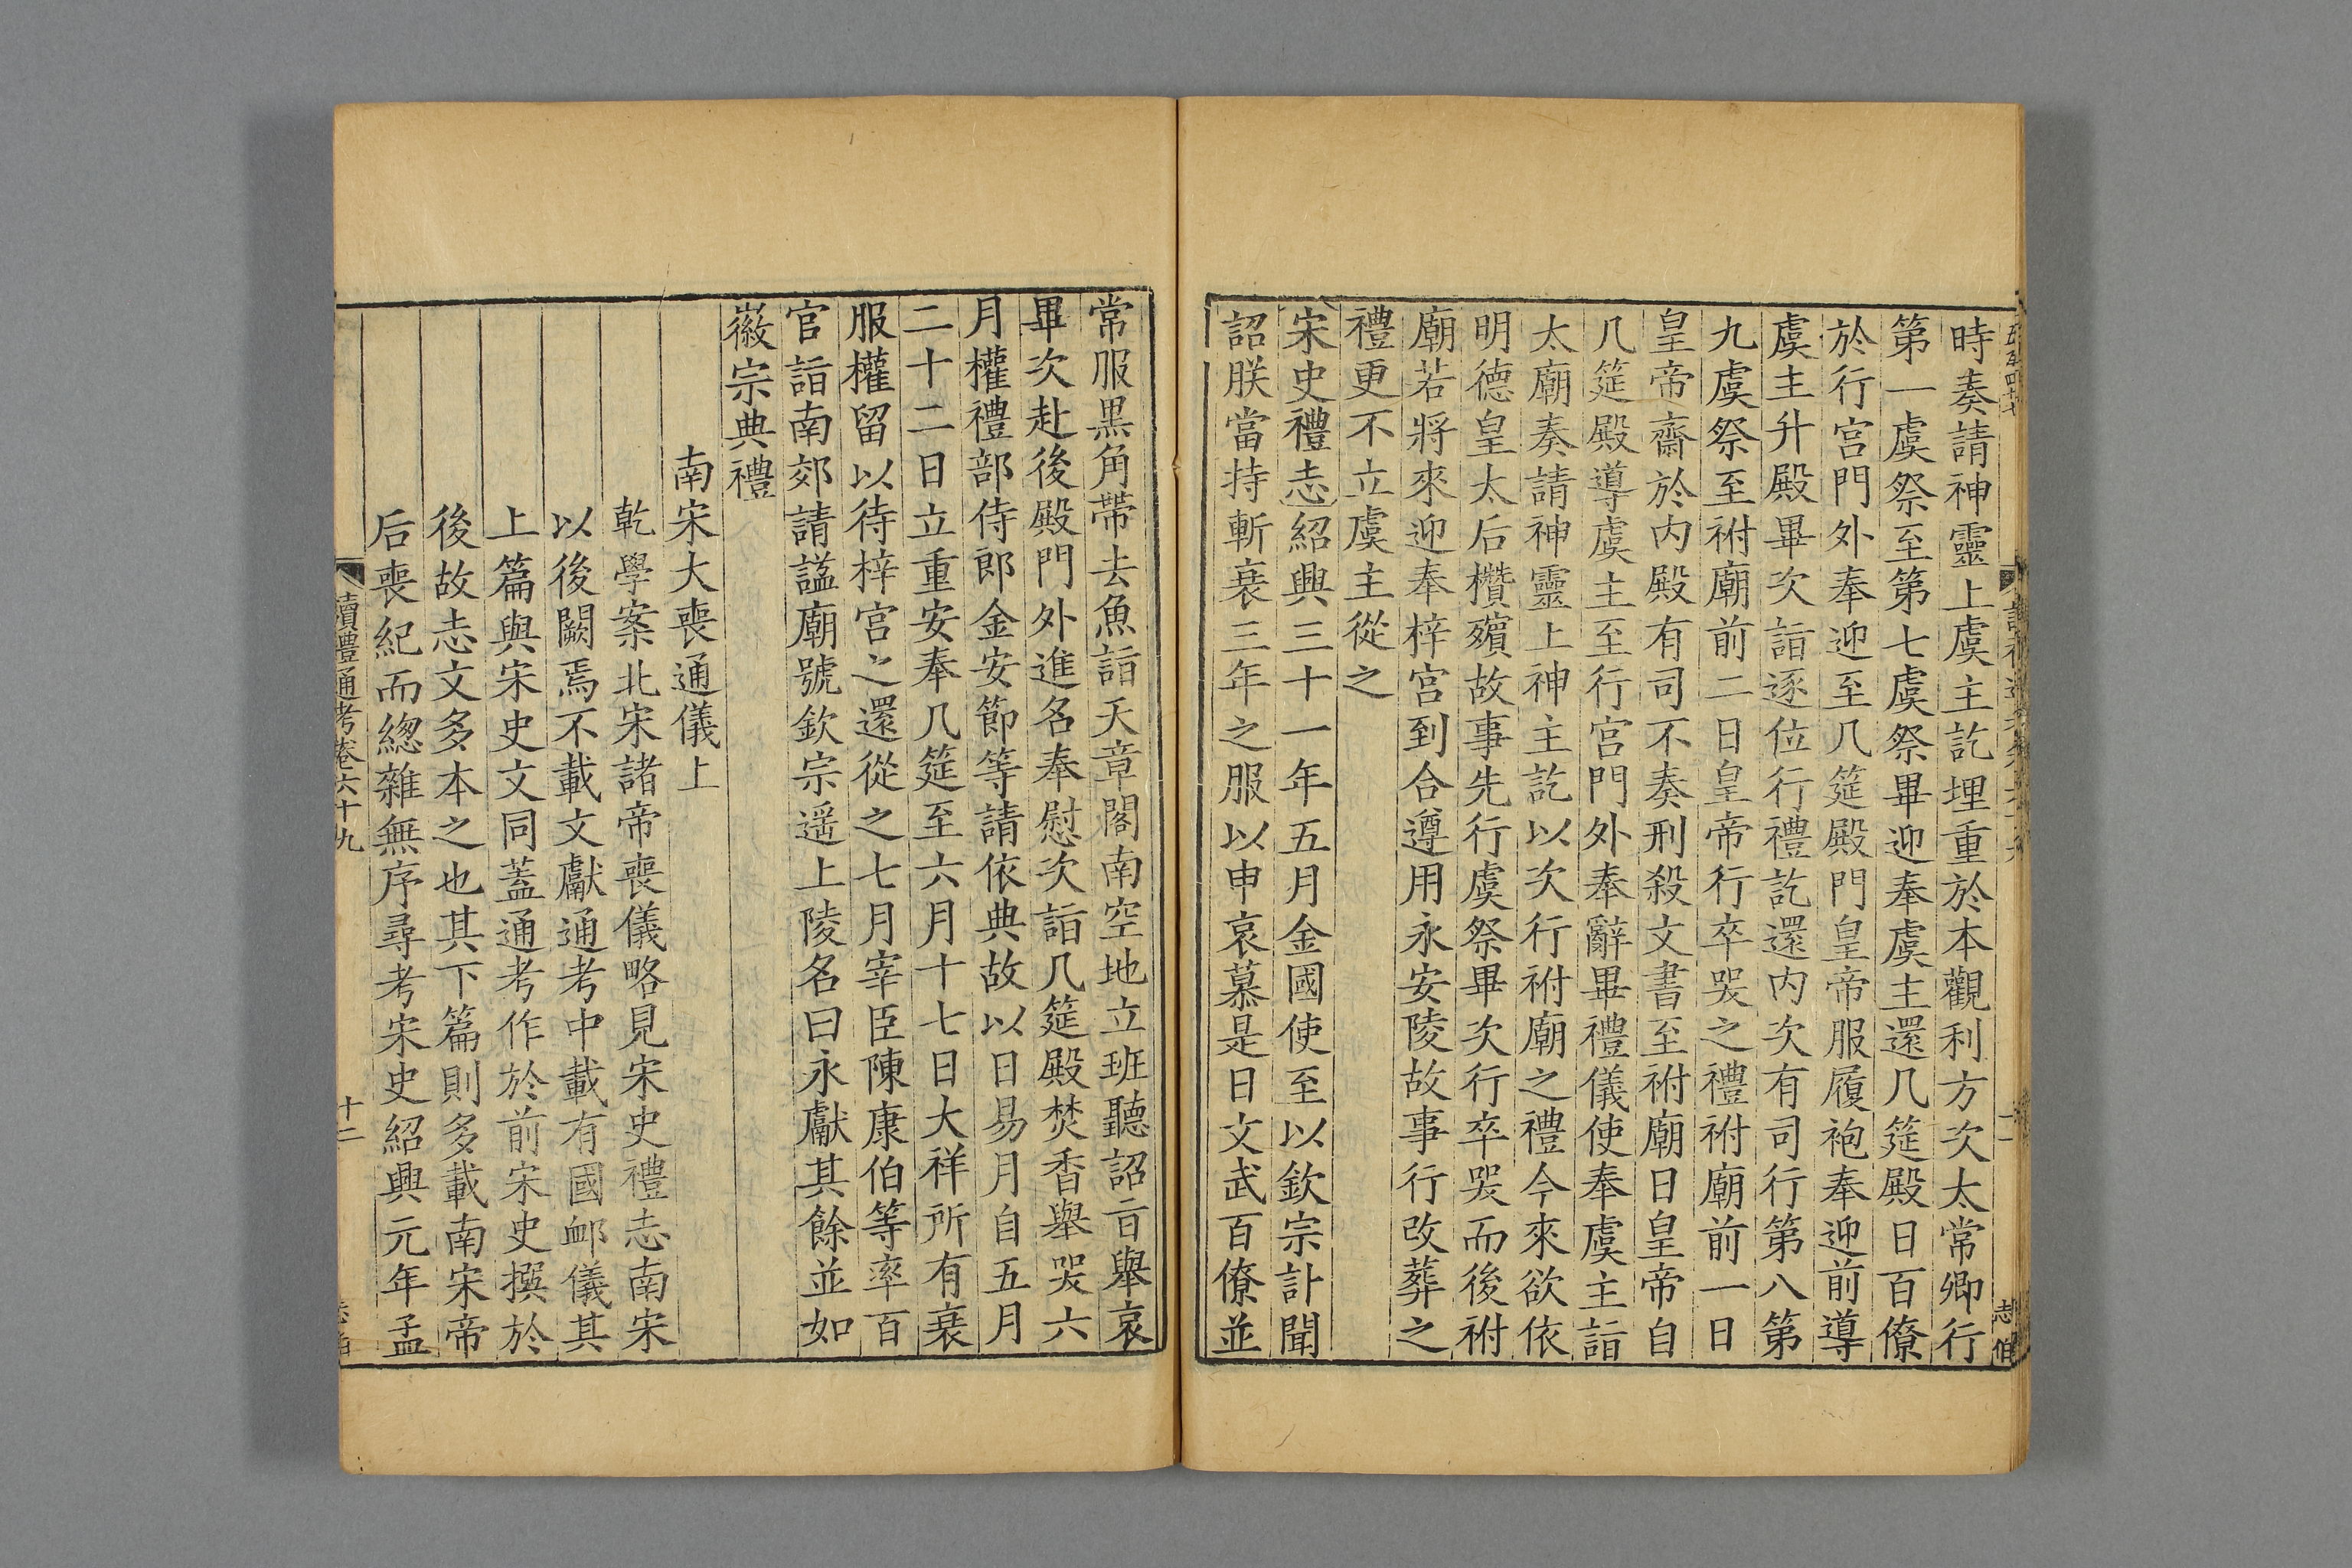 時奏請神靈上虞主訖埋重於本觀利方次太常卿行
第一虞祭至第七虞祭畢迎奉虞主還几筵殿日百僚
於行宮門外奉迎至几筵殿門皇帝服履袍奉迎前導
虞主升殿畢次詣逐位行禮訖還内次有司行第八第
九虞祭至祔廟前二日皇帝行卒哭之禮祔廟前一日
皇帝齋於内殿有司不奏刑殺文書至祔廟日皇帝自
几筵殿導虞主至行宮門外奉辭畢禮儀使奉虞主詣
太廟奏請神靈上神主訖以次行祔廟之禮今來欲依
明德皇太后欑殯故事先行虞祭畢次行卒哭而後祔
廟若將來迎奉梓宮到合遵用永安陵故事行改葬之
禮更不立虞主從之
宋史禮志紹興三十一年五月金國使至以欽宗訃聞
詔朕當持斬衰三年之服以申哀慕是日文武百僚並
常服黒角帶去魚詣天章閣南空地立班聽詔㫖舉哀
畢次赴後殿門外進名奉慰次詣几筵殿焚香舉哭六
月權禮部侍郎金安節等請依典故以日易月自五月
二十二日立重安奉几筵至六月十七日大祥所有衰
服權留以待梓宮之還從之七月宰臣陳康伯等率百
官詣南郊請諡廟號欽宗遥上陵名曰永獻其餘並如
徽宗典禮
南宋大喪通儀上
乾學案北宋諸帝喪儀略見宋史禮志南宋
以後闕焉不載文獻通考中載有國䘏儀其
上篇與宋史文同蓋通考作於前宋史撰於
後故志文多本之也其下篇則多載南宋帝
后喪紀而緫雜無序尋考宋史紹興元年孟
讀禮通考卷六十九
十二